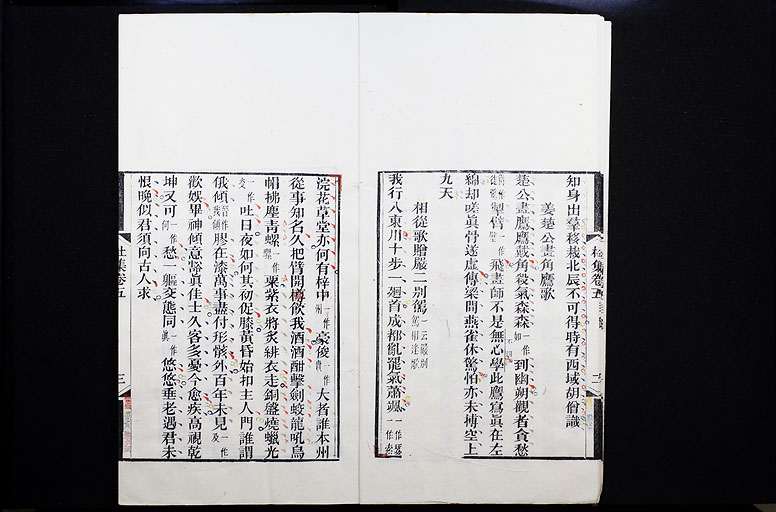 知身出羣移栽北辰不可得時有西域胡僧識
姜楚公畫角鷹歌
楚公畫鷹鷹戴角殺氣森森一作如到幽朔觀者貪愁
掣臂一作飛畫師不是無心學此鷹寫眞在左
綿却嗟眞骨遂虛傳梁閒燕雀休驚怕亦未摶空上
九天
相從歌贈嚴二別駕一云嚴別駕相逢歌
我行入東川十步一廻首成都亂罷氣蕭颯
浣花草堂亦何有梓中一作州豪俊一作貴大者誰本州
從事知名久把臂開樽飲我酒酒酣擊劍蛟龍吼烏
帽拂塵青螺一作騾粟紫衣將炙緋衣走銅盤燒蠟光
一作交吐日夜如何其初促膝黃昏始扣主人門誰謂
俄傾一作我傾膠在漆萬事盡付形骸外百年未見一作及
歡娛畢神傾意豁眞佳士久客多憂今愈疾高視乾
坤又可一作何愁一軀交態同一作眞悠悠垂老遇君未
恨晚似君須向古人求
杜集卷五
三
杜集卷五
二